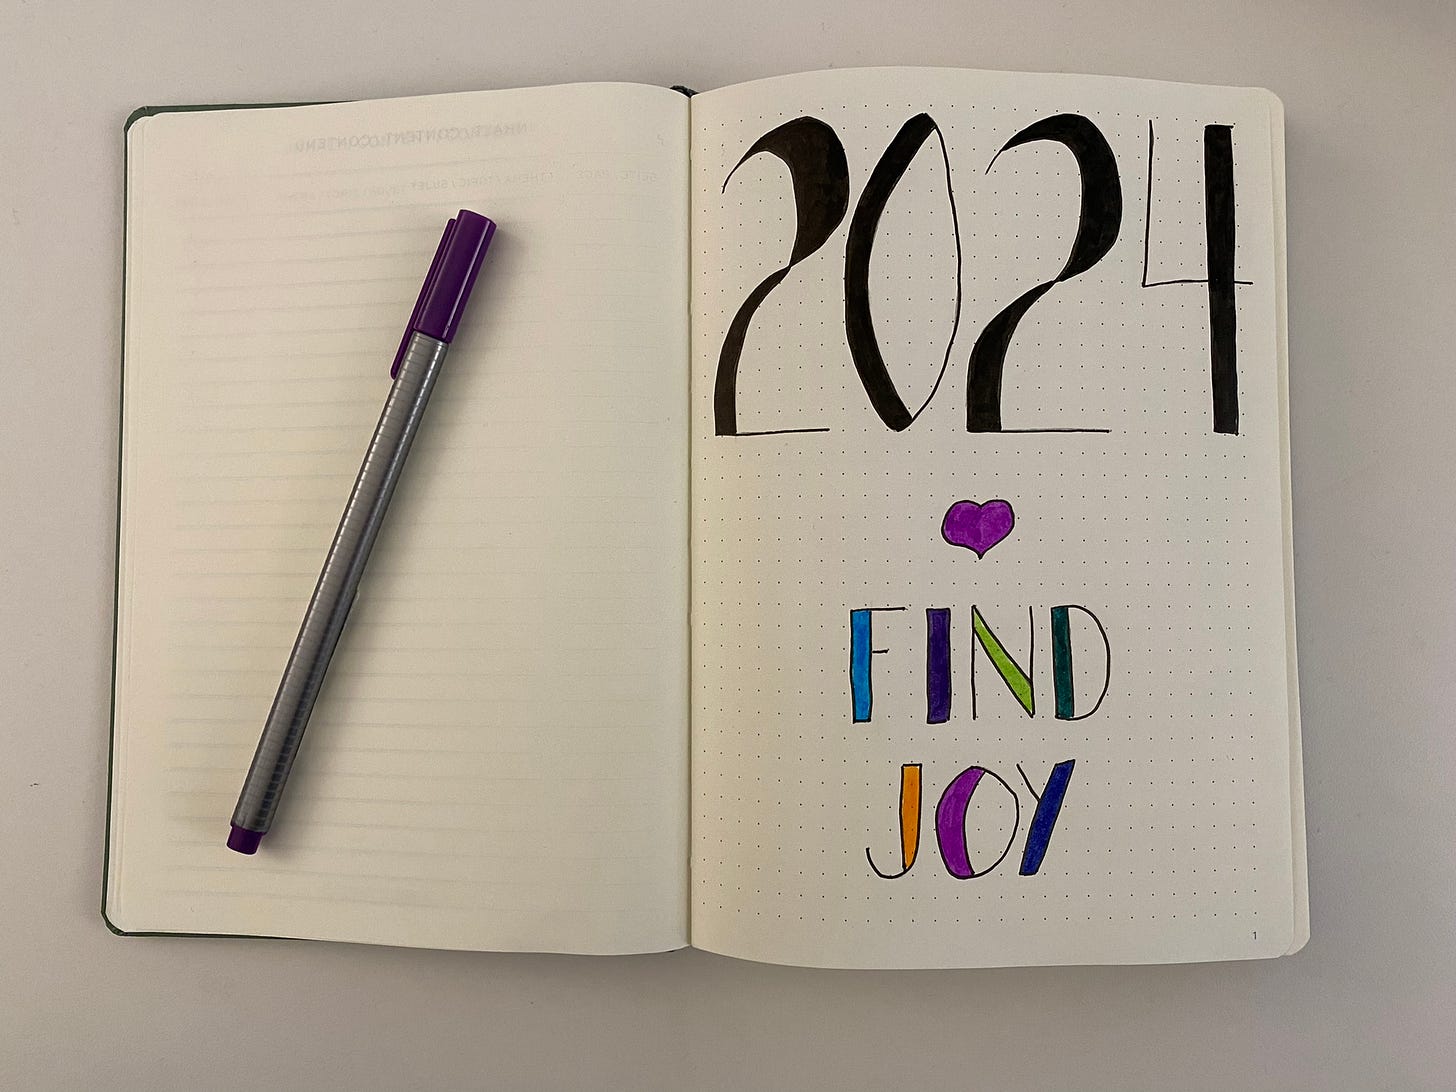 2024
FIND
JOY
1